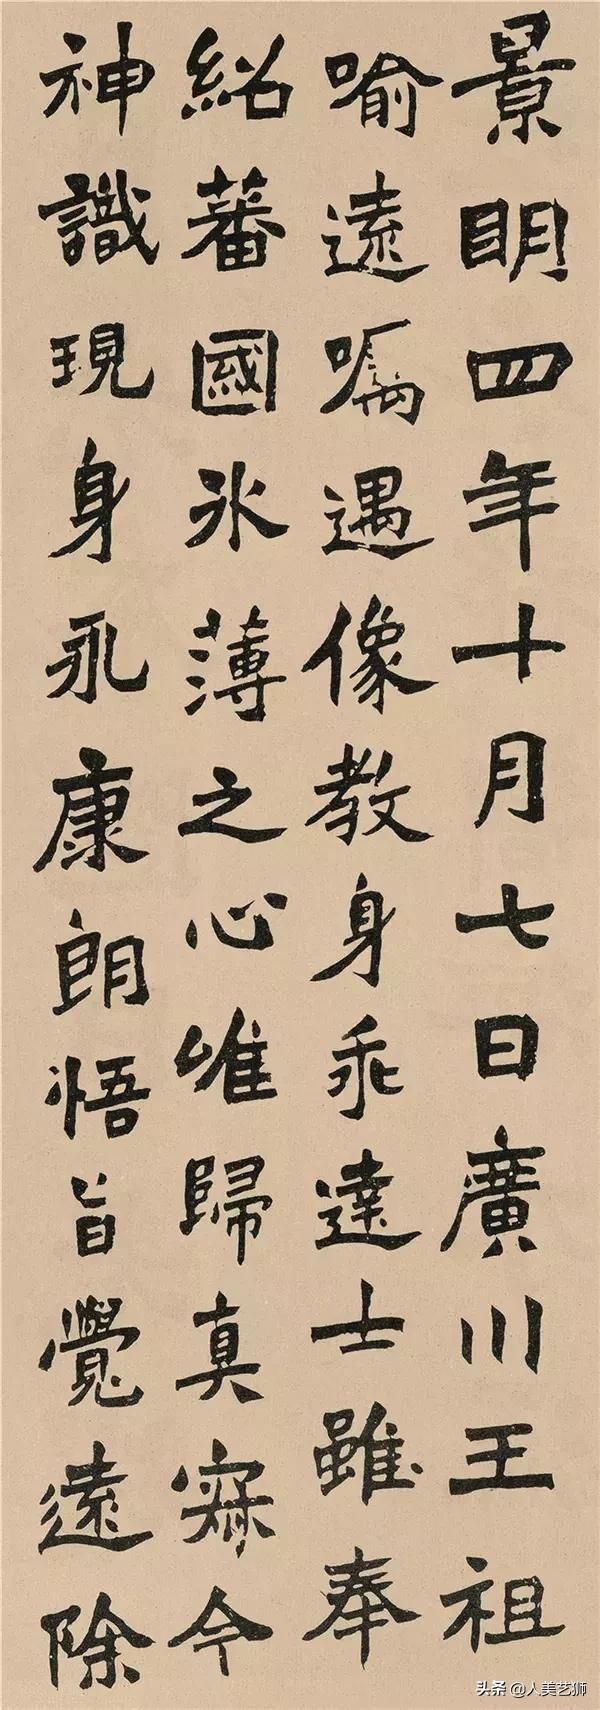 景明四年十月七日廣川王祖
喻遠囑遇像教身乖達士雖奉
紹蕃國氷薄之心唯歸真寂今
神識現身永康朗悟旨覺遠除
头条 @人美艺狮